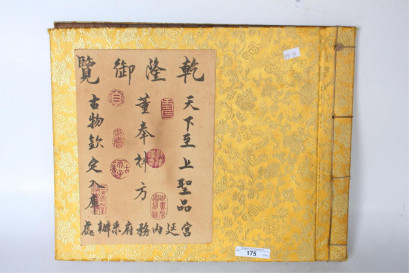 乾隆御覽
天下至上聖品
董奉神方
古物欽定入庫
宮廷內務府系辦處
175